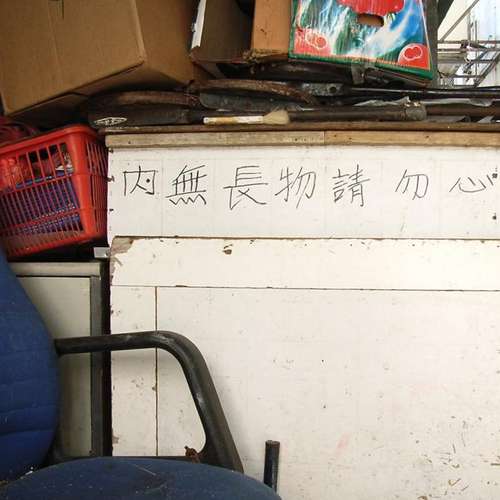 內無長物請勿心